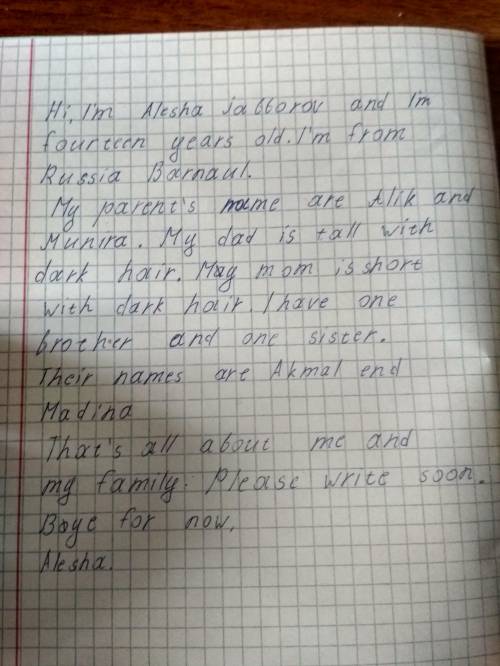 Hi, I'm Alesha jabborov and I'm
fourteen years old. I'm from
Russia Barnaul.
My parent's name are Alik and
Munira. My dad is tall with
dark hair. May mom is short
with dark hair. I have one
brother and one sister.
Their names are Akmal end
Madina
That's all about me and
my family. Please write soon.
Boye for now,
Alesha.